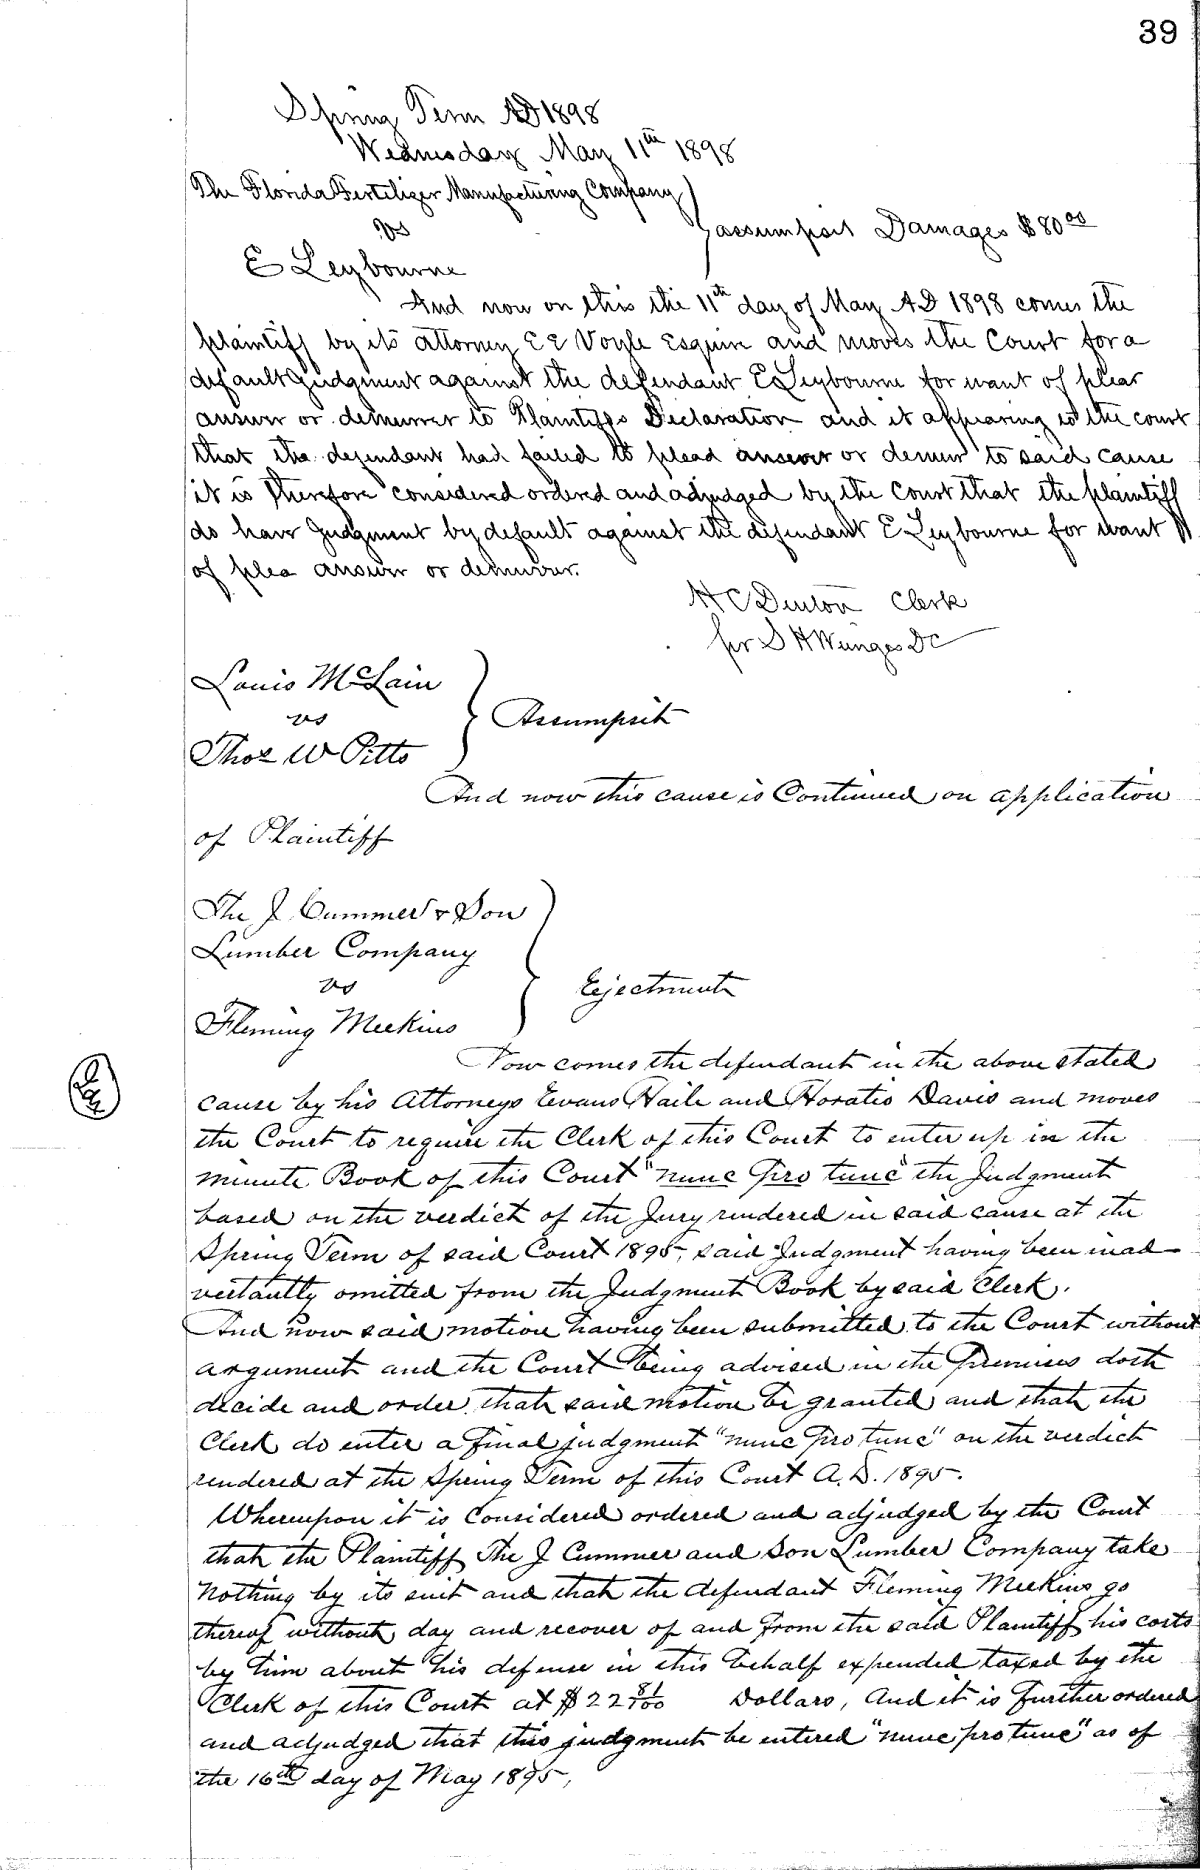 39
Spring Term AD 1898
Wednesday May 11th 1898
The Florida Fertilizer Manufacturing Company
vs
assumpsit Damages $80 00
E Leybourne
And now on this the 11th day of May AD 1898 comes the
plaintiff by its attorney E E Voyle Esquire and moves the Court for a
default judgment against the defendant E Leybourne for want of plear
answer or demurrer to Plaintiffs Declaration and it appearing to the court
that the defendant had failed to plead answer or demur to said cause
it is therefore considered ordered and adjudged by the Court that the plaintiff
do have judgment by default against the defendant E Leybourne for want
of plea answer or demurrer.
H C Denton Clerk
per S H Wienges DC
Louis McLain
vs
Assumpsit
Thos W Pitts
And now this cause is Continued on application
of Plaintiff
The J Cummer & Son
Lumber Company
vs
Ejectment
Fleming Meekins
Now comes the defendant in the above stated
cause by his Attorneys Evans Haile and Horatio Davis and moves
the Court to require the Clerk of this Court to enter up in the
minute Book of this Court "nunc pro tunc" the Judgment
based on the verdict of the Jury rendered in said cause at the
Spring Term of said Court 1895, said Judgment having been inad-
vertantly omitted from the Judgment Book by said Clerk.
And now said motion having been submitted to the Court without
argument and the Court being advised in the Premises doth
decide and order that said motion be granted and that the
Clerk do enter a final judgment "nunc pro tunc" on the verdict
rendered at the Spring Term of this Court A.D. 1895.
Whereupon it is Considered ordered and adjudged by the Court
that the Plaintiff The J Cummer and Son Lumber Company take
nothing by its suit and that the defendant Fleming Meekins go
thereof without day and recover of and from the said Plaintiff his costs
by him about his defense in this behalf expended taxed by the
Clerk of this Court at $22 81/100 Dollars, And it is further ordered
and adjudged that this judgment be entered "nunc pro tunc" as of
the 16th day of May 1895,